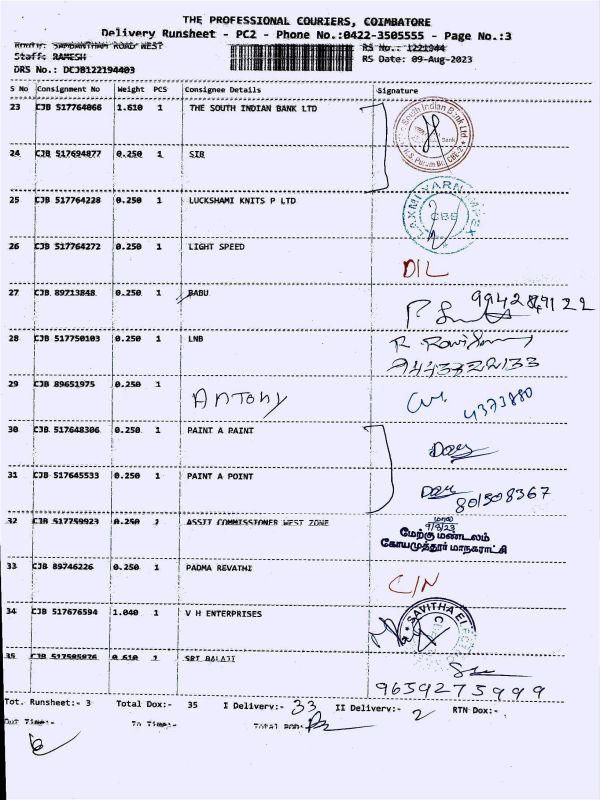 THE PROFESSIONAL COURIERS, COIMBATORE
Delivery Runsheet - PC2 - Phone No.:0422-3505555 - Page No.:3
Route: SAMBANTHAM ROAD WEST RS No.: 1221944
Staff: RAMESH RS Date: 09-Aug-2023
DRS No.: DCJB122194403
S No Consignment No Weight PCS Consignee Details Signature
23 CJB 517764066 1.610 1 THE SOUTH INDIAN BANK LTD
24 CJB 517694877 0.250 1 SIB
25 CJB 517764228 0.250 1 LUCKSHAMI KNITS P LTD
26 CJB 517764272 0.250 1 LIGHT SPEED
DIL
27 CJB 89713848 0.250 1 BABU
28 CJB 517750103 0.250 1 LNB
9443322133
29 CJB 89651975 0.250 1 ANTONY
4373880
30 CJB 517648306 0.250 1 PAINT A PAINT
31 CJB 517645533 0.250 1 PAINT A POINT
801508367
32 CJB 517759923 0.250 1 ASSIT COMMISSIONER WEST ZONE
மேற்கு மண்டலம்
கோயமுத்தூர் மாநகராட்சி
33 CJB 89746226 0.250 1 PADMA REVATHI
C/N
34 CJB 517676594 1.040 1 V H ENTERPRISES
SAVITHA
35 CJB 517505076 0.610 1 SRI BALAJI
9659275999
Tot. Runsheet:- 3 Total Dox:- 35 I Delivery:- 33 II Delivery:- 2 RTN Dox:-
Out Time:- In Time:- Total POD:-